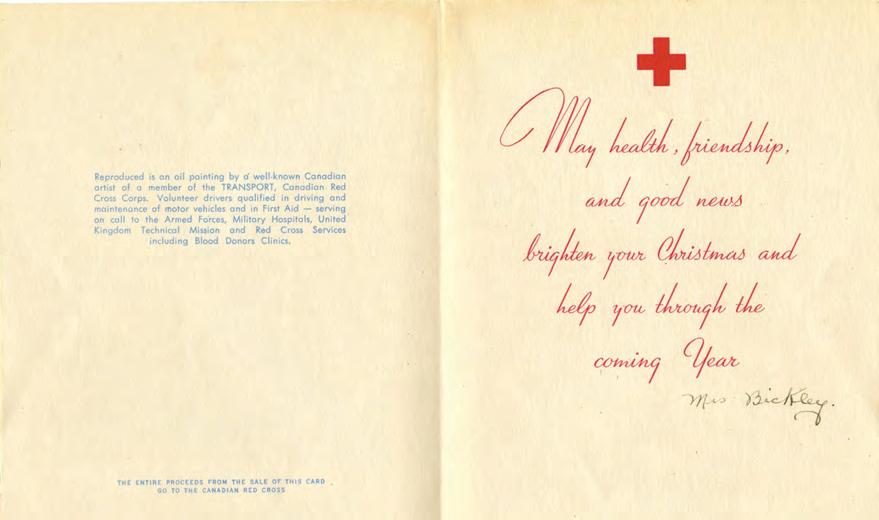 Reproduced is an oil painting by a well-known Canadian
artist of a member of the TRANSPORT, Canadian Red
Cross Corps. Volunteer drivers qualified in driving and
maintenance of motor vehicles and in First Aid — serving
on call to the Armed Forces, Military Hospitals, United
Kingdom Technical Mission and Red Cross Services
including Blood Donors Clinics.
THE ENTIRE PROCEEDS FROM THE SALE OF THIS CARD
GO TO THE CANADIAN RED CROSS
May health, friendship,
and good news
brighten your Christmas and
help you through the
coming Year
Mrs Bickley.